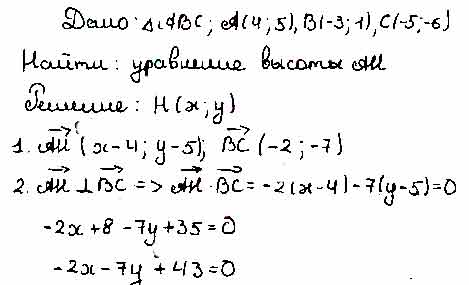 Дано: △ABC; A(4;5), B(-3;1), C(-5;-6)
Найти: уравнение высоты AH
Решение: H(x;y)
1. AH⃗ (x-4; y-5); BC⃗ (-2;-7)
2. AH⃗ ⊥ BC⃗ => AH⃗ · BC⃗ = -2(x-4)-7(y-5)=0
-2x+8-7y+35=0
-2x-7y+43=0